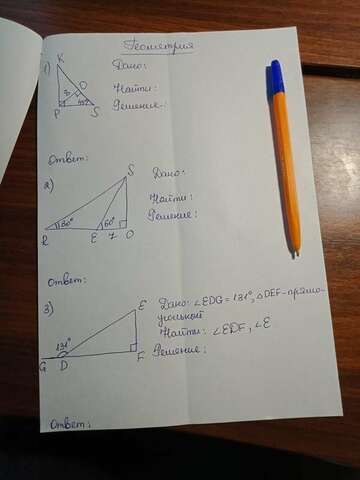 Геометрия
1)
K
Дано:
O
8
45°
P
S
Найти:
Решение:
Ответ:
2)
S
Дано:
Найти:
Решение:
R
30°
E
60°
7
O
Ответ:
3)
E
Дано: ∠EDG = 131°, △DEF - прямо-
угольной
Найти: ∠EDF, ∠E
Решение:
131°
G
D
F
Ответ: